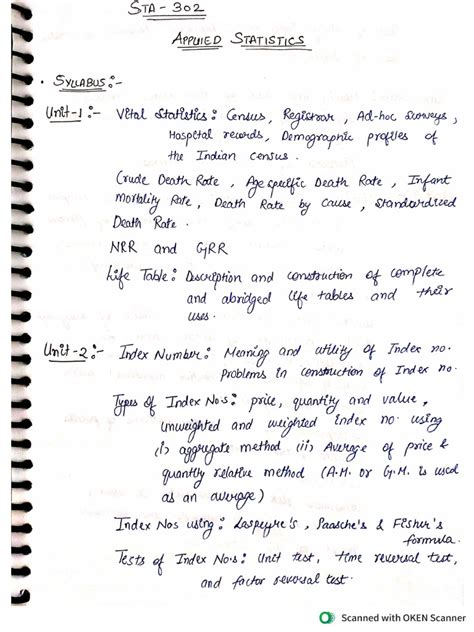 STA - 302
APPLIED STATISTICS
• SYLLABUS :-
Unit-1 :- Vital Statistics : Census, Registrar, Ad-hoc surveys,
Hospital records, Demographic profiles of
the Indian Census.
Crude Death Rate, Age specific Death Rate, Infant
Mortality Rate, Death Rate by Cause, Standardized
Death Rate.
NRR and GRR
Life Table : Description and construction of complete
and abridged life tables and their
uses.
Unit-2 :- Index Number : Meaning and utility of Index no.
problems in construction of Index no.
Types of Index No.s : price, quantity and value,
unweighted and weighted index no. using
(i) aggregate method (ii) Average of price &
quantity relative method (A.M. or G.M. is used
as an average)
Index Nos using : Laspeyre's, Paasche's & Fisher's
formula.
Tests of Index No.s : Unit test, time reversal test,
and factor reversal test.
Scanned with OKEN Scanner